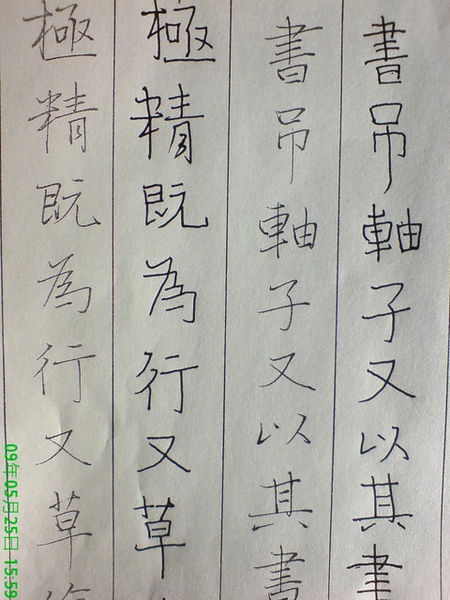 書吊軸子又以其書
書吊軸子又以其書
極精既為行又草
極精既為行又草
09年05月25日 15:59